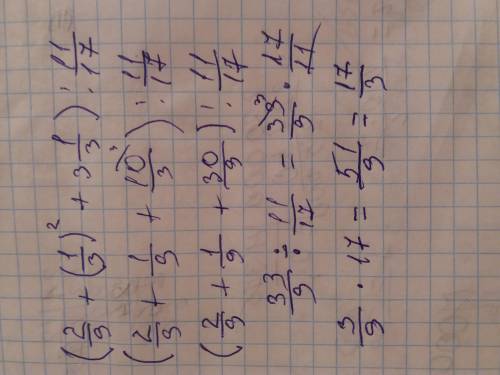 (2/9 + (1/3)² + 3 1/3) : 11/17
(2/9 + 1/9 + 10/3) : 11/17
(2/9 + 1/9 + 30/9) : 11/17
33/9 ÷ 11/17 = 33³/9 · 17/11
3/9 · 17 = 51/9 = 17/3